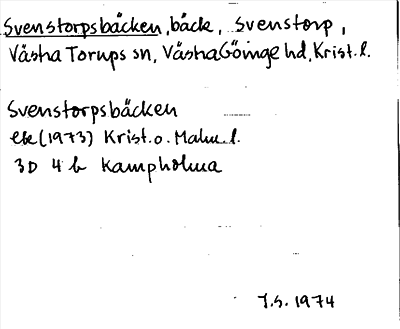 Svenstorpsbäcken, bäck, Svenstorp,
Västra Torups sn, Västra Göinge hd, Krist. l.
Svenstorpsbäcken
ek (1973) Krist. o. Malm. l.
3D 4 b Kampholma
J.S. 1974